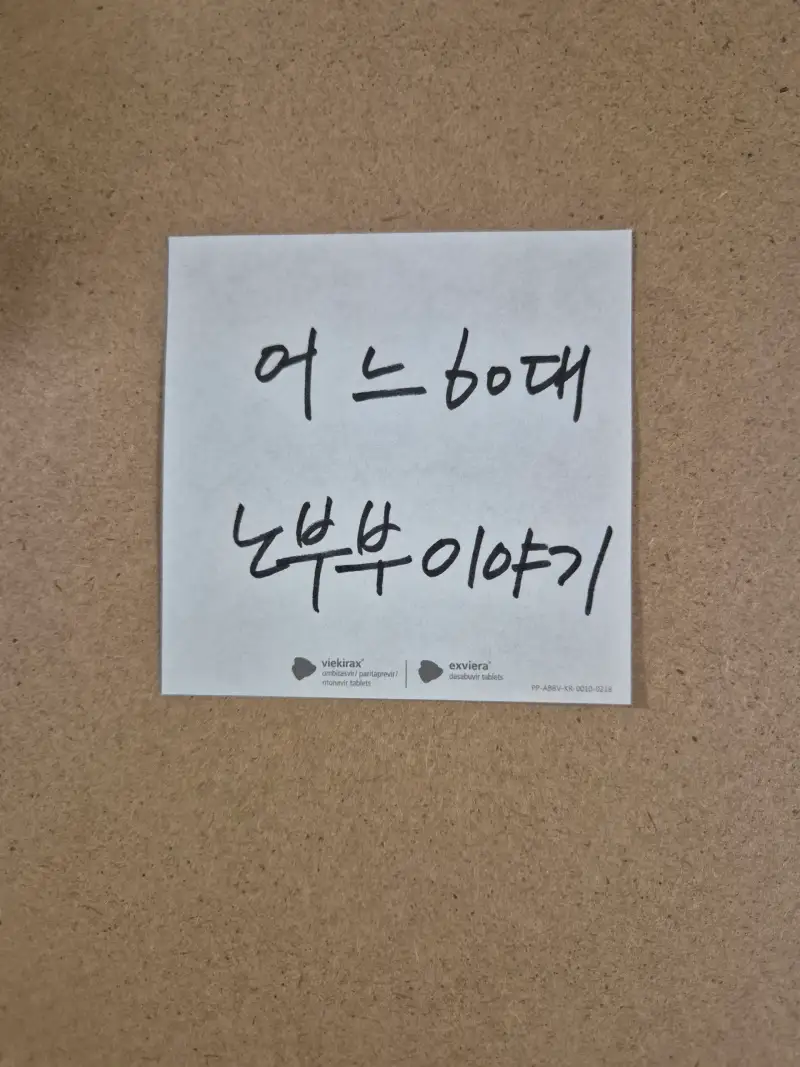 어느60대
노부부이야기
viekirax®
ombitasvir/paritaprevir/
ritonavir tablets
exviera®
dasabuvir tablets
PP-ABBV-KR-0010-0216